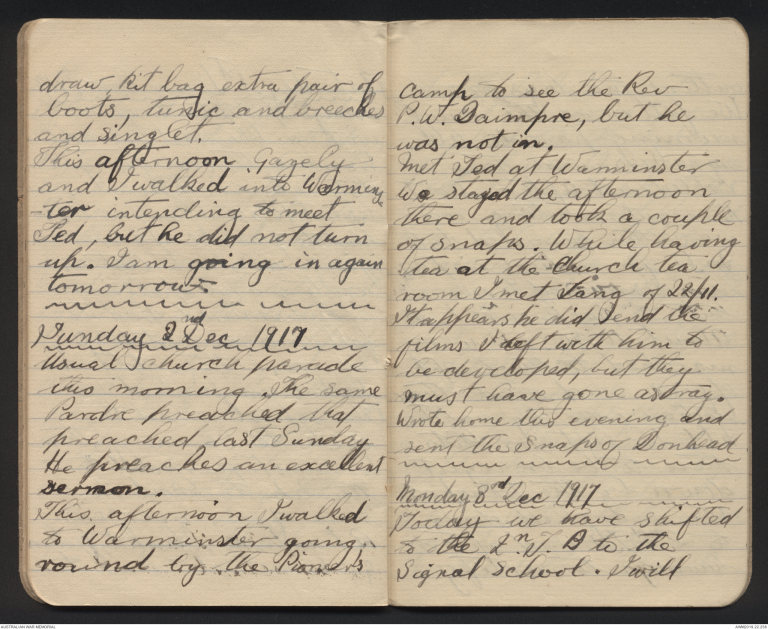 draw, kit bag extra pair of
boots, tunic and breeches
and singlet.
This afternoon Gazely
and I walked into Warmins
-ter intending to meet
Ted, but he did not turn
up. I am going in again
tomorrow.
Sunday 2nd Dec 1917
Usual church parade
this morning. The same
Pardre preached that
preached last Sunday
He preaches an excellent
sermon.
This afternoon I walked
to Warminster going
round by the Pioneer's
camp to see the Rev
P.W. Dairmpre, but he
was not in.
Met Ted at Warminster
We stayed the afternoon
there and took a couple
of snaps. While having
tea at the church tea
room I met Tang of 22/11.
It appears he did send the
films I left with him to
be developed, but they
must have gone astray.
Wrote home this evening and
sent the snaps of Donhead
Monday 3rd Dec 1917
Today we have shifted
to the 2n. T. B to the
Signal School. I will
AUSTRALIAN WAR MEMORIAL